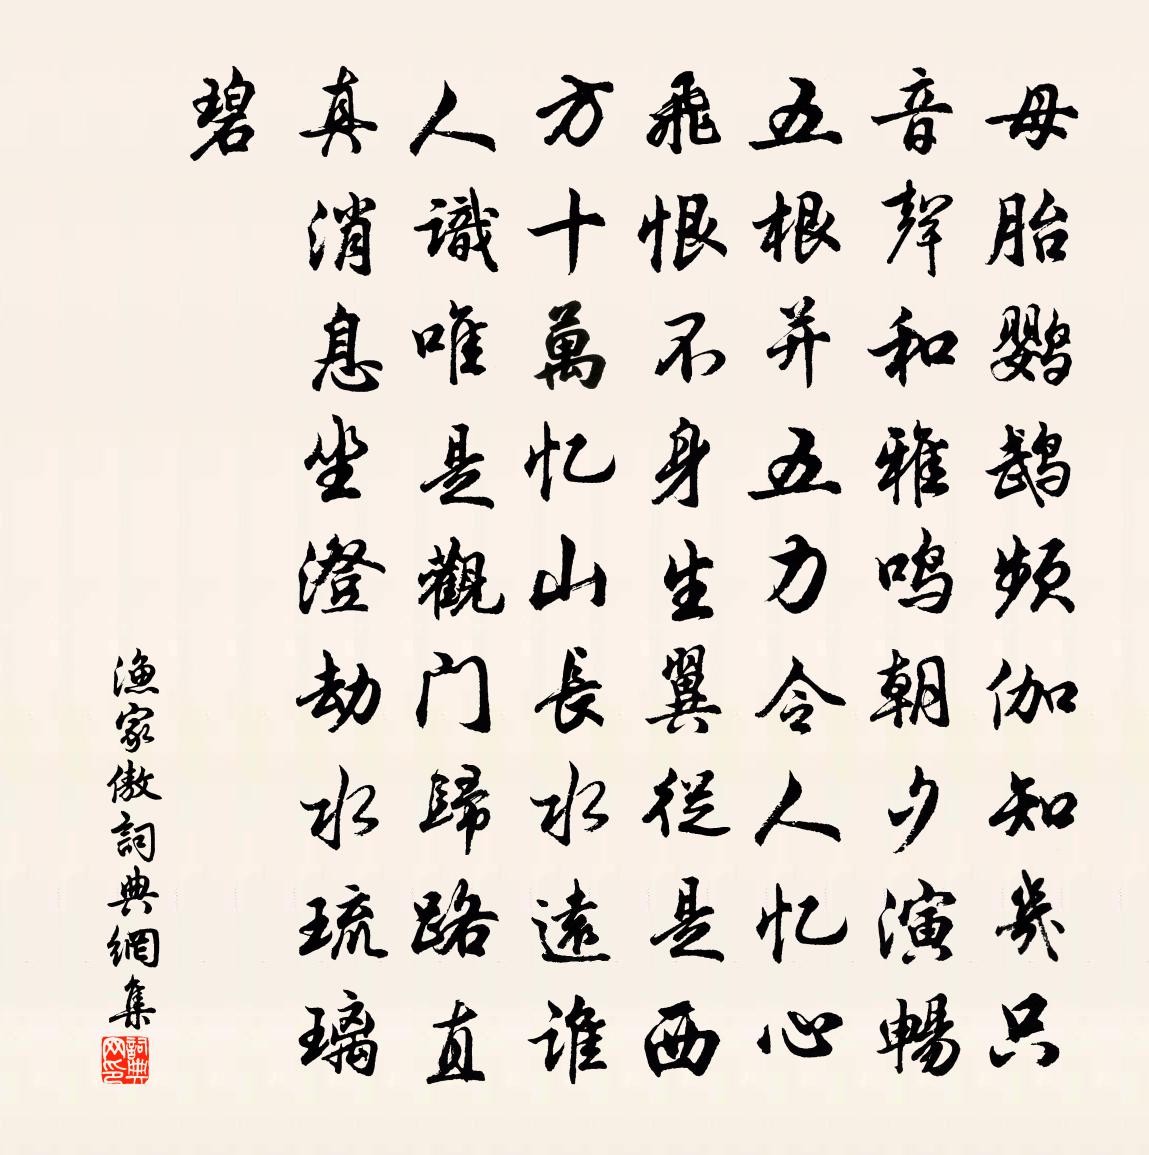 母胎鹦鹉頻伽知幾只
音聲和雅鸣朝夕演暢
五根并五力令人忆心
飛恨不身生翼從是西
方十萬忆山長水遠誰
人識唯是觀门歸路直
真消息坐澄劫水琉璃
碧
漁家傲詞典網集
詞典网印